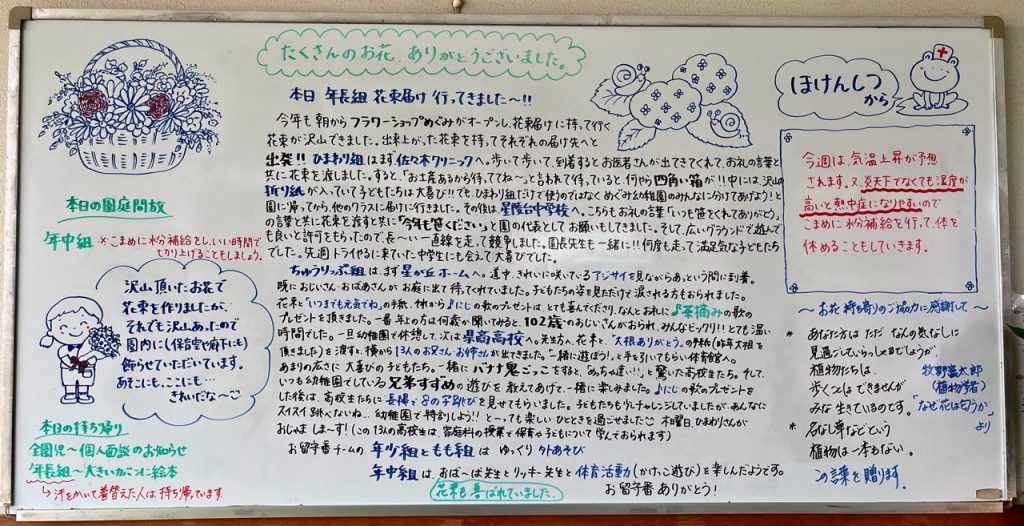 たくさんのお花、ありがとうございました。
本日の園庭開放
年中組
※こまめに水分補給をし、いい時間で
きり上げることもしましょう。
沢山頂いたお花で
花束を作りましたが、
それでも沢山あったので
園内に(保育室や廊下にも)
飾らせていただいています。
あそこにも、ここにも…
きれいだな〜
本日の持ち帰り
全園児〜個人面談のお知らせ
年長組〜大きいかごに絵本
↳汗をかいて着替えた人は持ち帰っています
本日 年長組 花束届け 行ってきました〜!!
今年も朝からフラワーショップめぐみがオープンし、花束届けに持って行く
花束が沢山できました。出来上がった花束を持ってそれぞれの届け先へと
出発!! ひまわり組はまず佐々木クリニックへ。歩いて歩いて、到着するとお医者さんが出てきてくれて、お礼の言葉と
共に花束を渡しました。すると、「お土産あるから待っててね〜」と言われて待っていると、何やら四角い箱が!!中には、沢山の
折り紙が入っていて子どもたちは大喜び!!でも、ひまわり組だけで使うのではなくめぐみ幼稚園のみんなに分けてあげよう!と
園に帰ってから、他のクラスに届けに行きました。その後は、星陵台中学校へ。こちらもお礼の言葉「いつも笹をくれてありがとう」
の言葉と共に花束を渡すと共に「今年も笹ください」と園の代表としてお願いもしてきました。そして、広いグラウンドで遊んで
も良いと許可をもらったので、長〜い一直線を走って競争しました。園長先生も一緒に!!何度も走って満足気な子どもたち
でした。先週トライやるに来ていた中学生にも会えて大喜びでした。
ちゅうりっぷ組は、まず星が丘ホームへ。道中、きれいに咲いているアジサイを見ながらあっという間に到着。
既におじいさん・おばあさんがお庭に出て待ってくれていました。子どもたちの姿を見ただけで涙される方もおられました。
花束と「いつまでも元気でね」の手紙、にじの歌のプレゼントは、とても喜んでくださり、なんとお礼に♪茶摘みの歌の
プレゼントを頂きました。一番年上の方は何歳か聞いてみると、102歳のおじいさんがおられ、みんなビックリ!!とても温い
時間でした。一旦幼稚園で休憩して、次は県商高校へ。先生方へ、花束と「大根ありがとう」の手紙(昨年大根を
頂きました)を渡すと、横から13人のお兄さんお姉さんが出てきました。「一緒に遊ぼう!」と手を引いてもらい体育館へ。
あまりの広さに大喜びの子どもたち。一緒にバナナ鬼ごっこをすると、「めっちゃ速い!!」と驚いた高校生たち。そして、
いつも幼稚園でしている兄弟すずめの遊びを教えてあげて、一緒に楽しみました。♪にじの歌のプレゼントを
した後は、高校生たちに長縄で8の字跳びを見せてもらいました。子どもたちも少しチャレンジしていましたが、あんなに
スイスイ跳べたないね…幼稚園で特訓しよう!!と…とっても楽しいひとときを過ごせました 木曜日、ひまわりさんが
おじゃましま〜す!(この13人の高校生は、家庭科の授業で保育や子どもについて学んでおられます)
お留守番チームの年少組ともも組はゆっくり外あそび
年中組は、おば〜ば先生とリッキー先生と体育活動(かけっこ遊び)を楽しんだようです。
花束も喜ばれていました。
お留守番ありがとう!
ほけんしつ
から
今週は、気温上昇が予想
されます。又、炎天下でなくても湿度が
高いと熱中症になりやすいので
こまめに水分補給を行って、体を
休めることもしていきます。
〜お花持ち寄りのご協力に感謝して〜
* あなた方は ただ なんの気なしに
見過ごしていらっしゃるでしょうが、
植物たちは、
歩くことはできませんが
みな 生きているのです。
牧野富太郎
(植物学者)
「なぜ花は匂うか」
より
* 名もし草などという
植物は一本もない。
この言葉を贈ります。